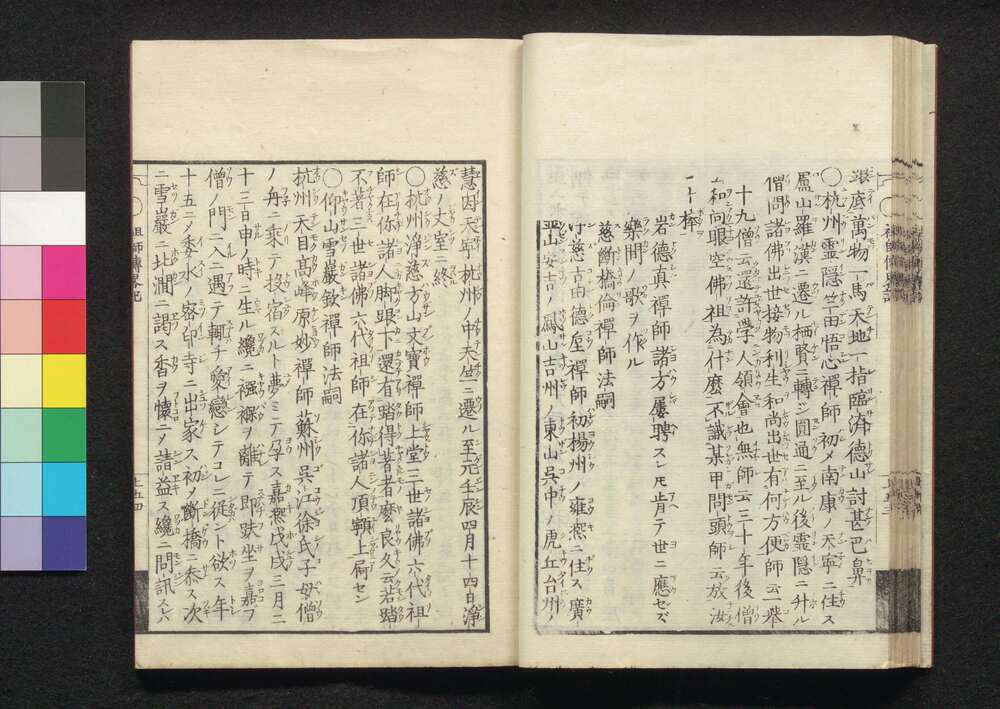 底萬物一馬天地一指臨濟德山討甚巴鼻
〇杭州靈隱竺田悟心禪師初メ南康ノ天寧ニ住ス
廬山羅漢ニ遷ル栖賢ニ轉シ圓通ニ至ル後靈隱ニ升ル
僧問諸佛出世接物利生和尚出世有何方便師云一舉
十九僧云還許學人領會也無師云三十年後僧
和向眼空佛祖為什麽不識某甲問頭師云放汝
一十棒
岩德真禪師諸方屢聘スレ𪜈肯テ世ニ應セズ
樂間ノ歌ヲ作ル
慈斷橋倫禪師法嗣
慈古田德垕禪師初揚州ノ雍熙ニ住ス廣
山安吉ノ鳳山吉州ノ東山呉中ノ虎丘台州ノ
慧因天寧杭州ノ中天竺ニ遷ル至元壬辰四月十四日淨
慈ノ丈室ニ終
〇杭州淨慈方山文寶禪師上堂三世諸佛六代祖
師在你諸人脚跟下還有踏得著者麽良久云若踏
不著三世諸佛六代祖師在你諸人頂𩕳上屙セン
〇仰山雪巖欽禪師法嗣
杭州天目髙峰原妙禪師蘇州呉江徐氏ノ子母僧
ノ舟ニ乘テ投宿スルト夢ミテ孕ス嘉熙戊戌三月二
十三日申ノ時ニ生ル纔ニ襁褓ヲ離テ即趺坐ヲ喜フ
僧ノ門ニ入ニ遇テ輒チ愛戀シテコレニ從ント欲ス年
十五ニメ委水ノ密印寺ニ出家ス初メ斷橋ニ参ス次
ニ雪巖ニ北澗ニ謁ス香ヲ懷ニメ請益ス纔ニ問訊スレハ
祖師傳
五四